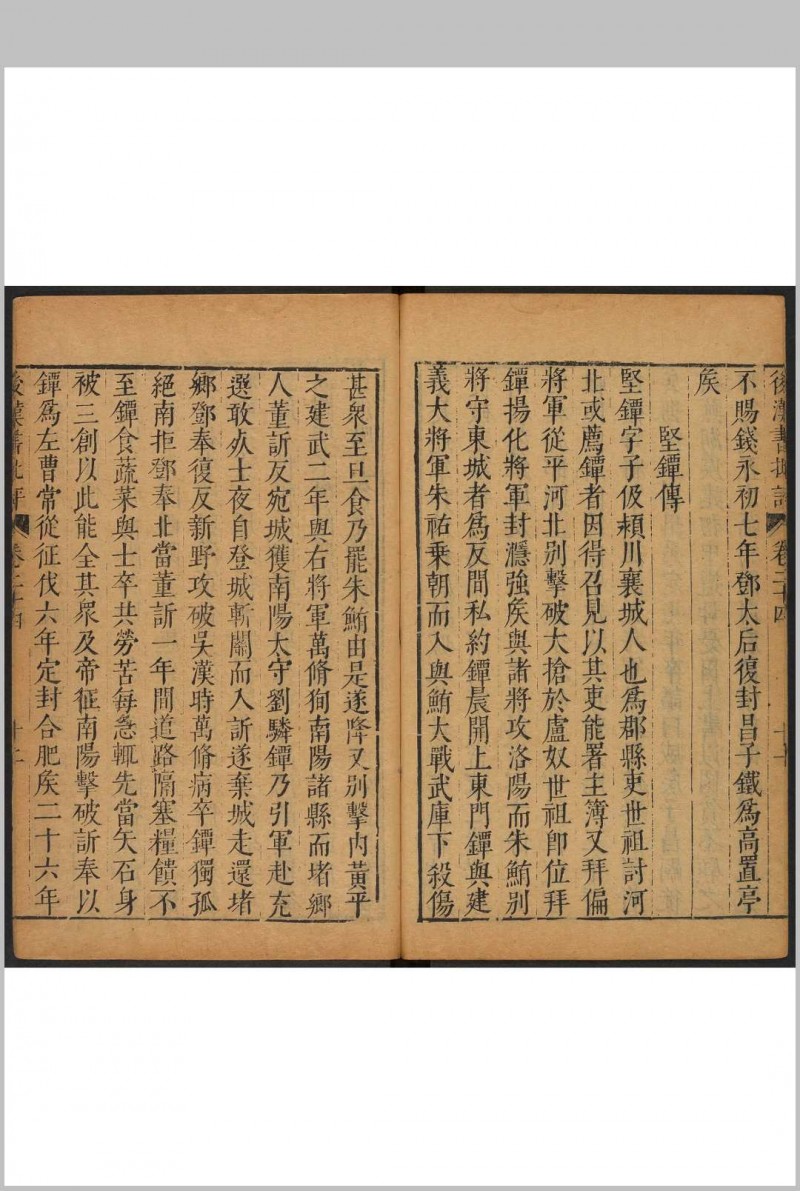 後漢書批評 卷二十四 十一
不賜錢永初七年鄧太后復封昌子鐵爲高置亭
矦
堅鐔傳
堅鐔字子伋頴川襄城人也爲郡縣吏世祖討河
北或薦鐔者因得召見以其吏能署主簿又拜偏
將軍從平河北别擊破大搶於盧奴世祖卽位拜
鐔揚化將軍封㶏強矦與諸將攻洛陽而朱鮪别
將守東城者爲反間私約鐔晨開上東門鐔與建
義大將軍朱祐乗朝而入與鮪大戰武庫下殺傷
甚衆至旦食乃罷朱鮪由是遂降又别擊内黃平
之建武二年與右將軍萬脩狥南陽諸縣而堵鄉
人董訢反宛城獲南陽太守劉驎鐔乃引軍赴宛
選敢死士夜自登城斬關而入訢遂棄城走還堵
鄉鄧奉復反新野攻破吳漢時萬脩病卒鐔獨孤
絕南拒鄧奉北當董訢一年間道路隔塞糧饋不
至鐔食蔬菜與士卒共勞苦每急輒先當矢石身
被三創以此能全其衆及帝征南陽擊破訢奉以
鐔爲左曹常從征伐六年定封合肥矦二十六年
後漢書批評 卷二十四 十二